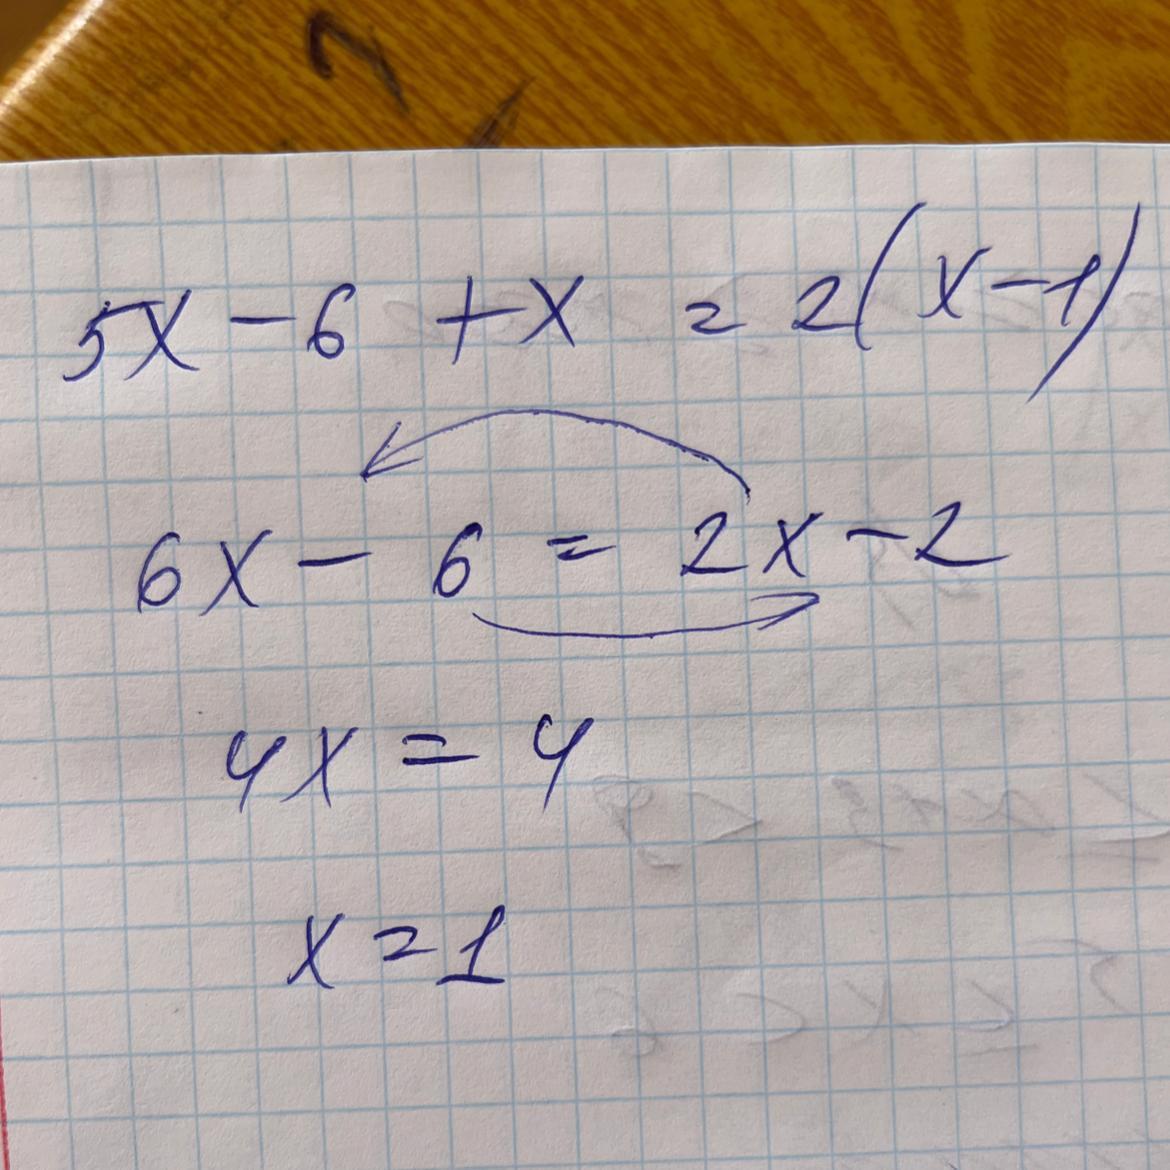 5x - 6 + x = 2(x - 1)
6x - 6 = 2x - 2
4x = 4
x = 1